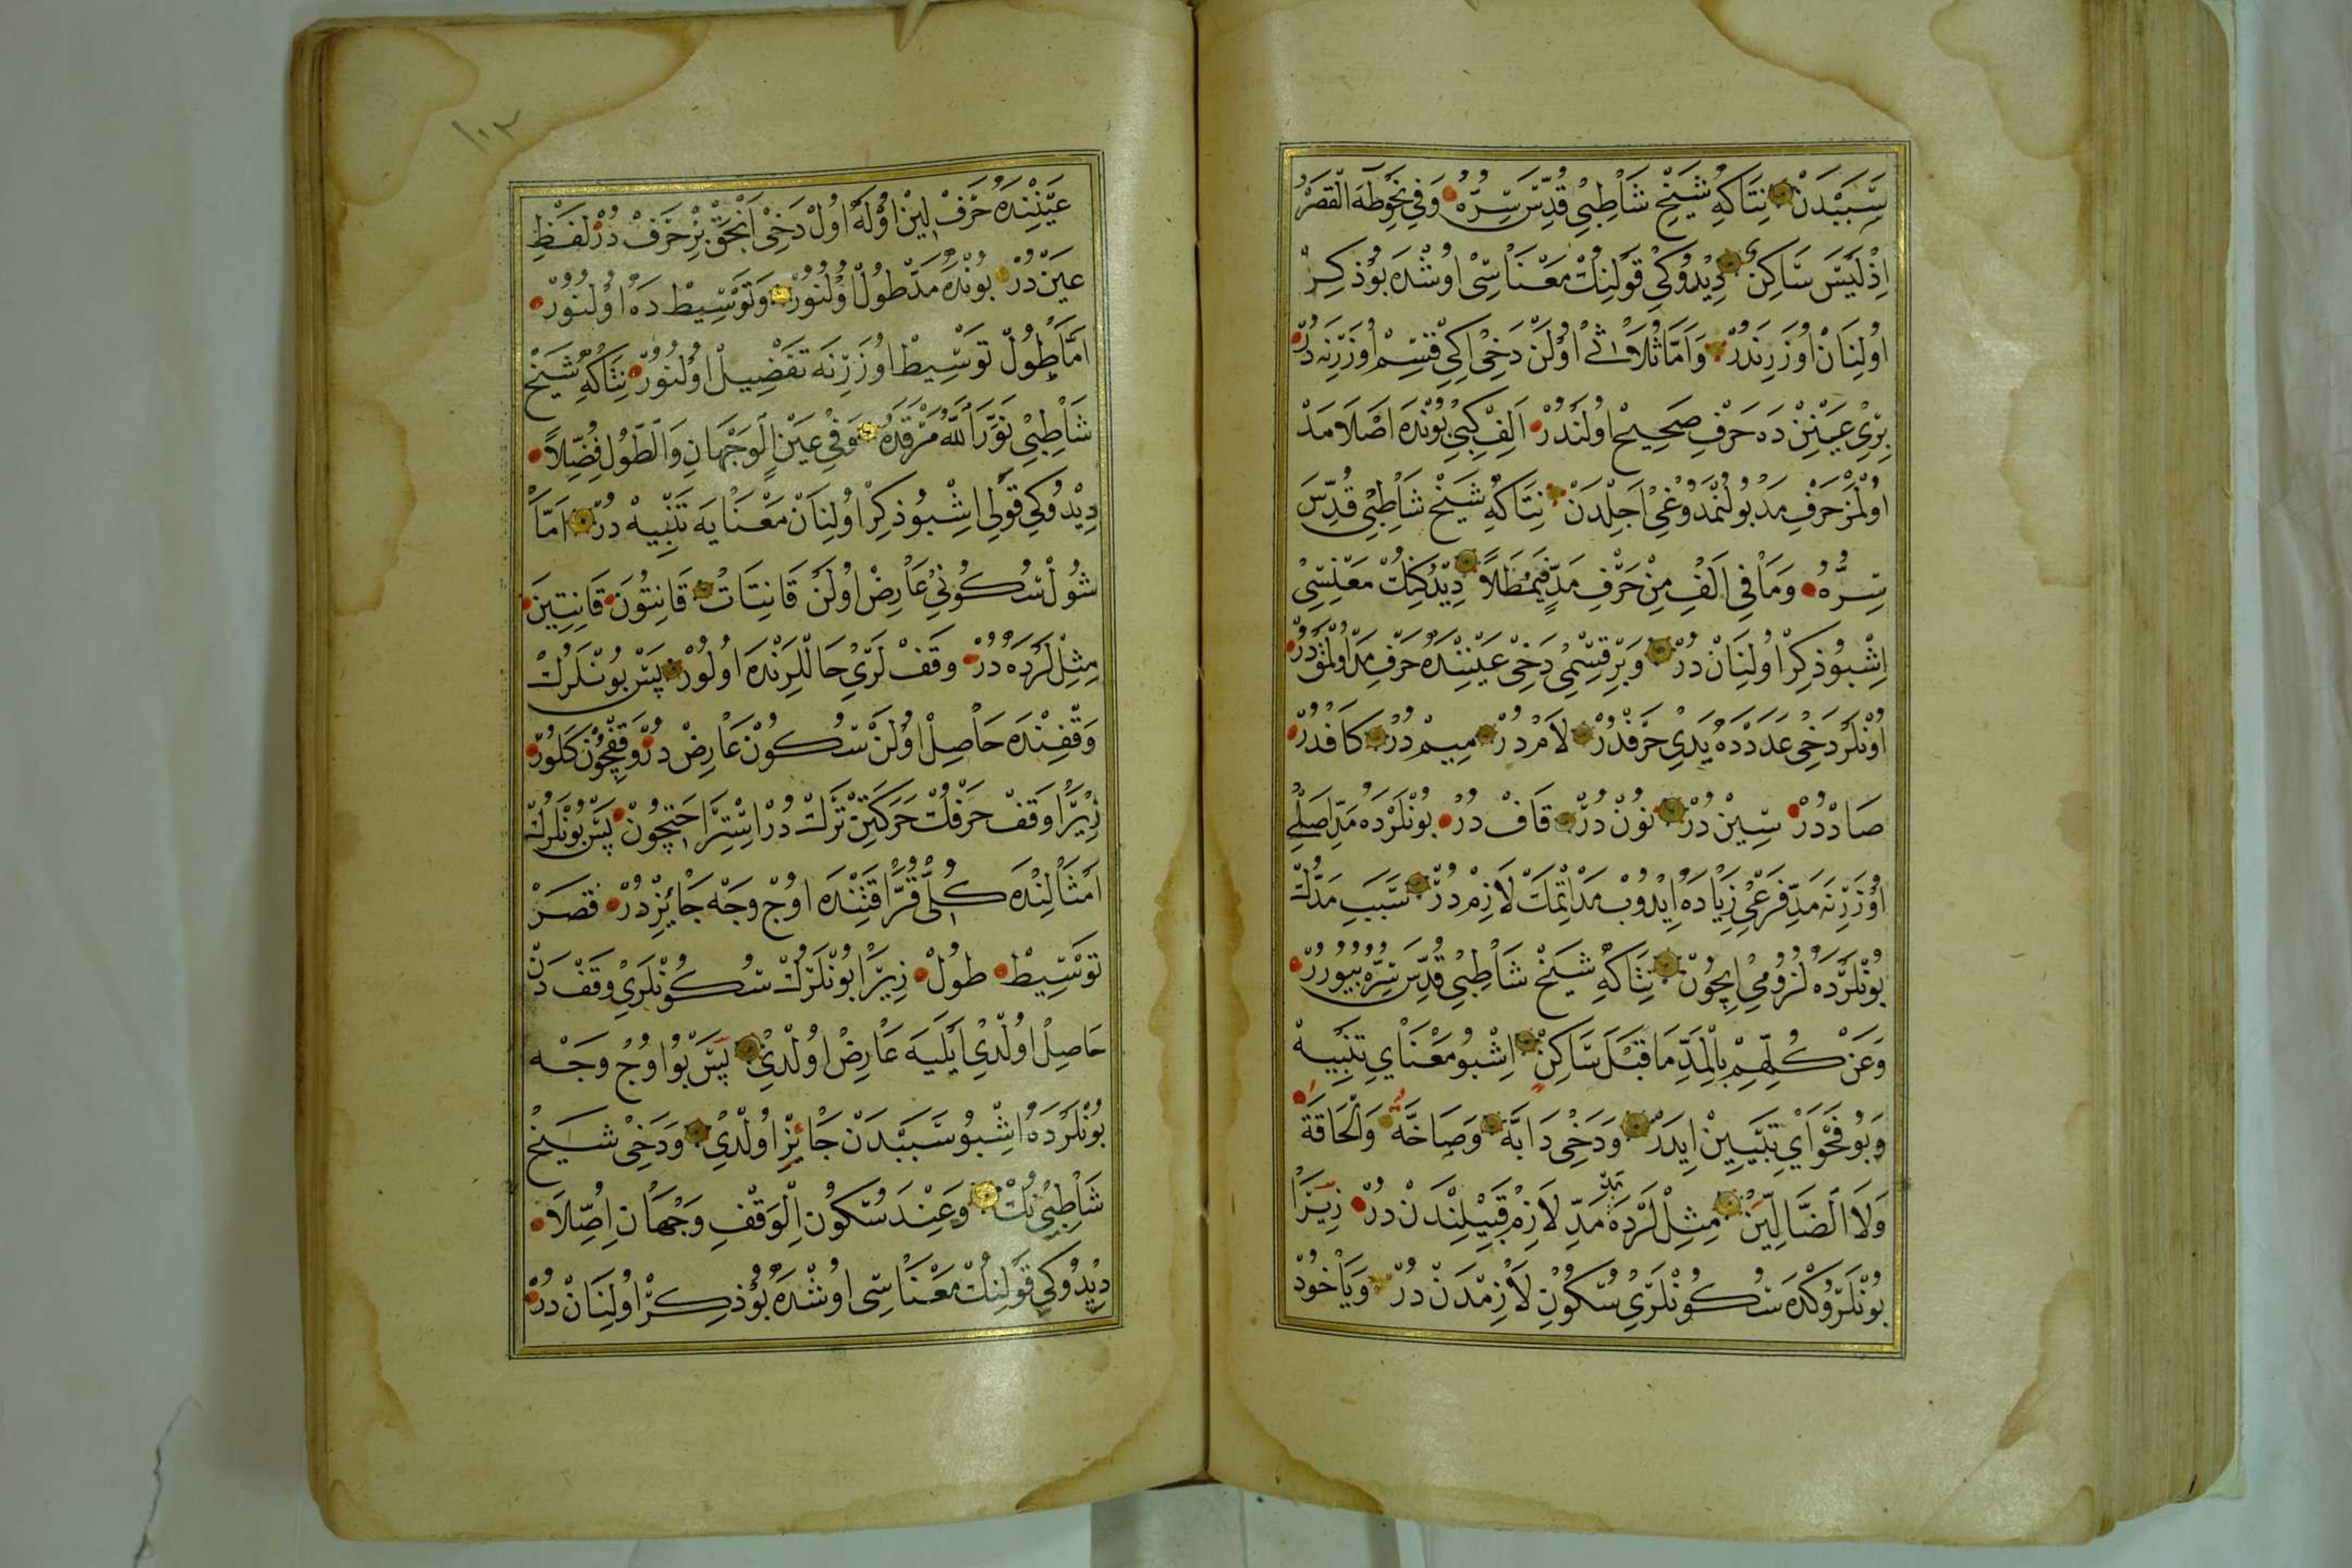 سَبَبْدَنْ نِتَاكِهِ شَيْخِ شَاطِبِي قُدِّسَ سِرُّهُ وَفِي نَحْوِ طٰهَ الْقَصْرُ
اِذْ لَيْسَ سَاكِنٌ دِيْدُوكِي قَوْلِنِكْ مَعْنَاسِي اوُشْدَه بُو ذِكِرْ
اوُلِنَانْ اوُزَرِنَدُرْ وَاَمَّا ثُلَاثِي اوُلَنْ دَخِي اِكِي قِسِمْ اوُزَرِنَه دُرْ
بِرِي عَيْنِنْدَه حَرْفِ صَحِيحْ اوُلَنْدُرْ اَلِفْ كِبِي بُونْدَه اَصْلَا مَدْ
اوُلْمَزْ حَرْفِ مَدْ بُولُنْمَدُوغِي اَجِلْدَنْ نِتَاكِهِ شَيْخْ شَاطِبِي قُدِّسَ
سِرُّهُ وَمَا فِي اَلِفْ مِنْ حَرْفِ مَدٍّ فَيُمْطَلَا دِيْدُكِنِكْ مَعْنِسِي
اِشْبُو ذِكِرْ اوُلِنَانْ دُرْ وَبِرْ قِسْمِي دَخِي عَيْنِنْدَه حَرْفِ مَدْ اوُلْمَقْ دُرْ
اوُنْلَرْ دَخِي عَدَدْدَه يَدِي حَرْفْدُرْ لَامْ دُرْ مِيمْ دُرْ كَافْدُرْ
صَادْ دُرْ سِينْ دُرْ نُونْ دُرْ قَافْ دُرْ بُونْلَرْدَه مَدِّ اَصْلِي
اوُزَرِنَه مَدِّ فَرْعِي زِيَادَه اِيدُوبْ مَدْ اِتْمَكْ لَازِمْ دُرْ سَبَبِ مَدْكْ
بُونْلَرْدَه لُزُومِي اِيچُونْ نِتَاكِهِ شَيْخْ شَاطِبِي قُدِّسَ سِرُّهُ بُيُورُرْ
وَعَنْ كُلِّهِمْ بِالْمَدِّ مَا قَبْلَ سَاكِنْ اِشْبُو مَعْنَايِ تَنْبِيهْ
وَبُو فَحْوَايِ تَبْيِينْ اِيدَرْ وَدَخِي دَابَّةْ وَصَاخَّةْ وَالْحَاقَّةْ
وَلَا الضَّالِّينْ مِثِلْلَرْدَه مَدِّ لَازِمْ قَبِيلِنْدَنْ دُرْ زِيرَا
بُونْلَرُوكْدَه سُكُونْلَرِي سُكُونِ لَازِمْدَنْ دُرْ وَيَاخُودْ
عَيْنِنْدَه حَرْفِ لِينْ اوُلَه اوُلْ دَخِي اَنْجَقْ بِرْ حَرَفْ دُرْ لَفْظِ
عَيْنْ دُرْ بُونْدَه مَدِّ طُولْ اوُلُنُورْ وَتَوْسِيطْ دَه اوُلُنُورْ
اَمَّا طُولْ تَوْسِيطْ اوُزَرِنَه تَفْضِيلْ اوُلُنُورْ نِتَاكِهِ شَيْخْ
شَاطِبِي نَوَّرَ اللّٰهُ مَرْقَدَهُ وَفِي عَيْنٍ الْوَجْهَانِ وَالطُّولُ فُضِّلَا
دِيْدُوكِي قَوْلِي اِشْبُو ذِكِرْ اوُلِنَانْ مَعْنَايَه تَنْبِيهْ دُرْ اَمَّا
شُولْ سُكُونِي عَارِضْ اوُلَنْ قَانِتَاتْ قَانِتُونَ قَانِتِينَ
مِثِلْلَرْدَه دُرْ وَقَفْلَرِي حَالْلَرِنْدَه اوُلُورْ پَسْ بُونْلَرُكْ
وَقْفِنْدَه حَاصِلْ اوُلَنْ سُكُونْ عَارِضْ دُرْ وَقْفِچُونْ كَلُورْ
زِيرَا وَقَفْ حَرْفُكْ حَرَكَتِنْ تَرْكْ دُرْ اِسْتِرَاحَتِچُونْ پَسْ بُونْلَرُكْ
اَمْثَالِنْدَه كُلِّ قُرَّا قَتِنْدَه اوُچْ وَجْه جَائِزْ دُرْ قَصَرْ
تَوْسِيطْ طُولْ زِيرَا بُونْلَرُكْ سُكُونْلَرِي وَقَفْدَنْ
حَاصِلْ اوُلْدِي اَيْلَيَه عَارِضْ اوُلْدِي پَسْ بُو اوُچْ وَجْه
بُونْلَرْدَه اِشْبُو سَبَبْدَنْ جَائِزْ اوُلْدِي وَدَخِي شَيْخْ
شَاطِبِي نُكْ وَعِنْدَ سُكُونِ الْوَقْفِ وَجْهَانِ اُصِّلَا
دِيْدُوكِي قَوْلِنُكْ مَعْنَاسِي اوُشْدَه بُو ذِكِرْ اوُلِنَانْ دُرْ